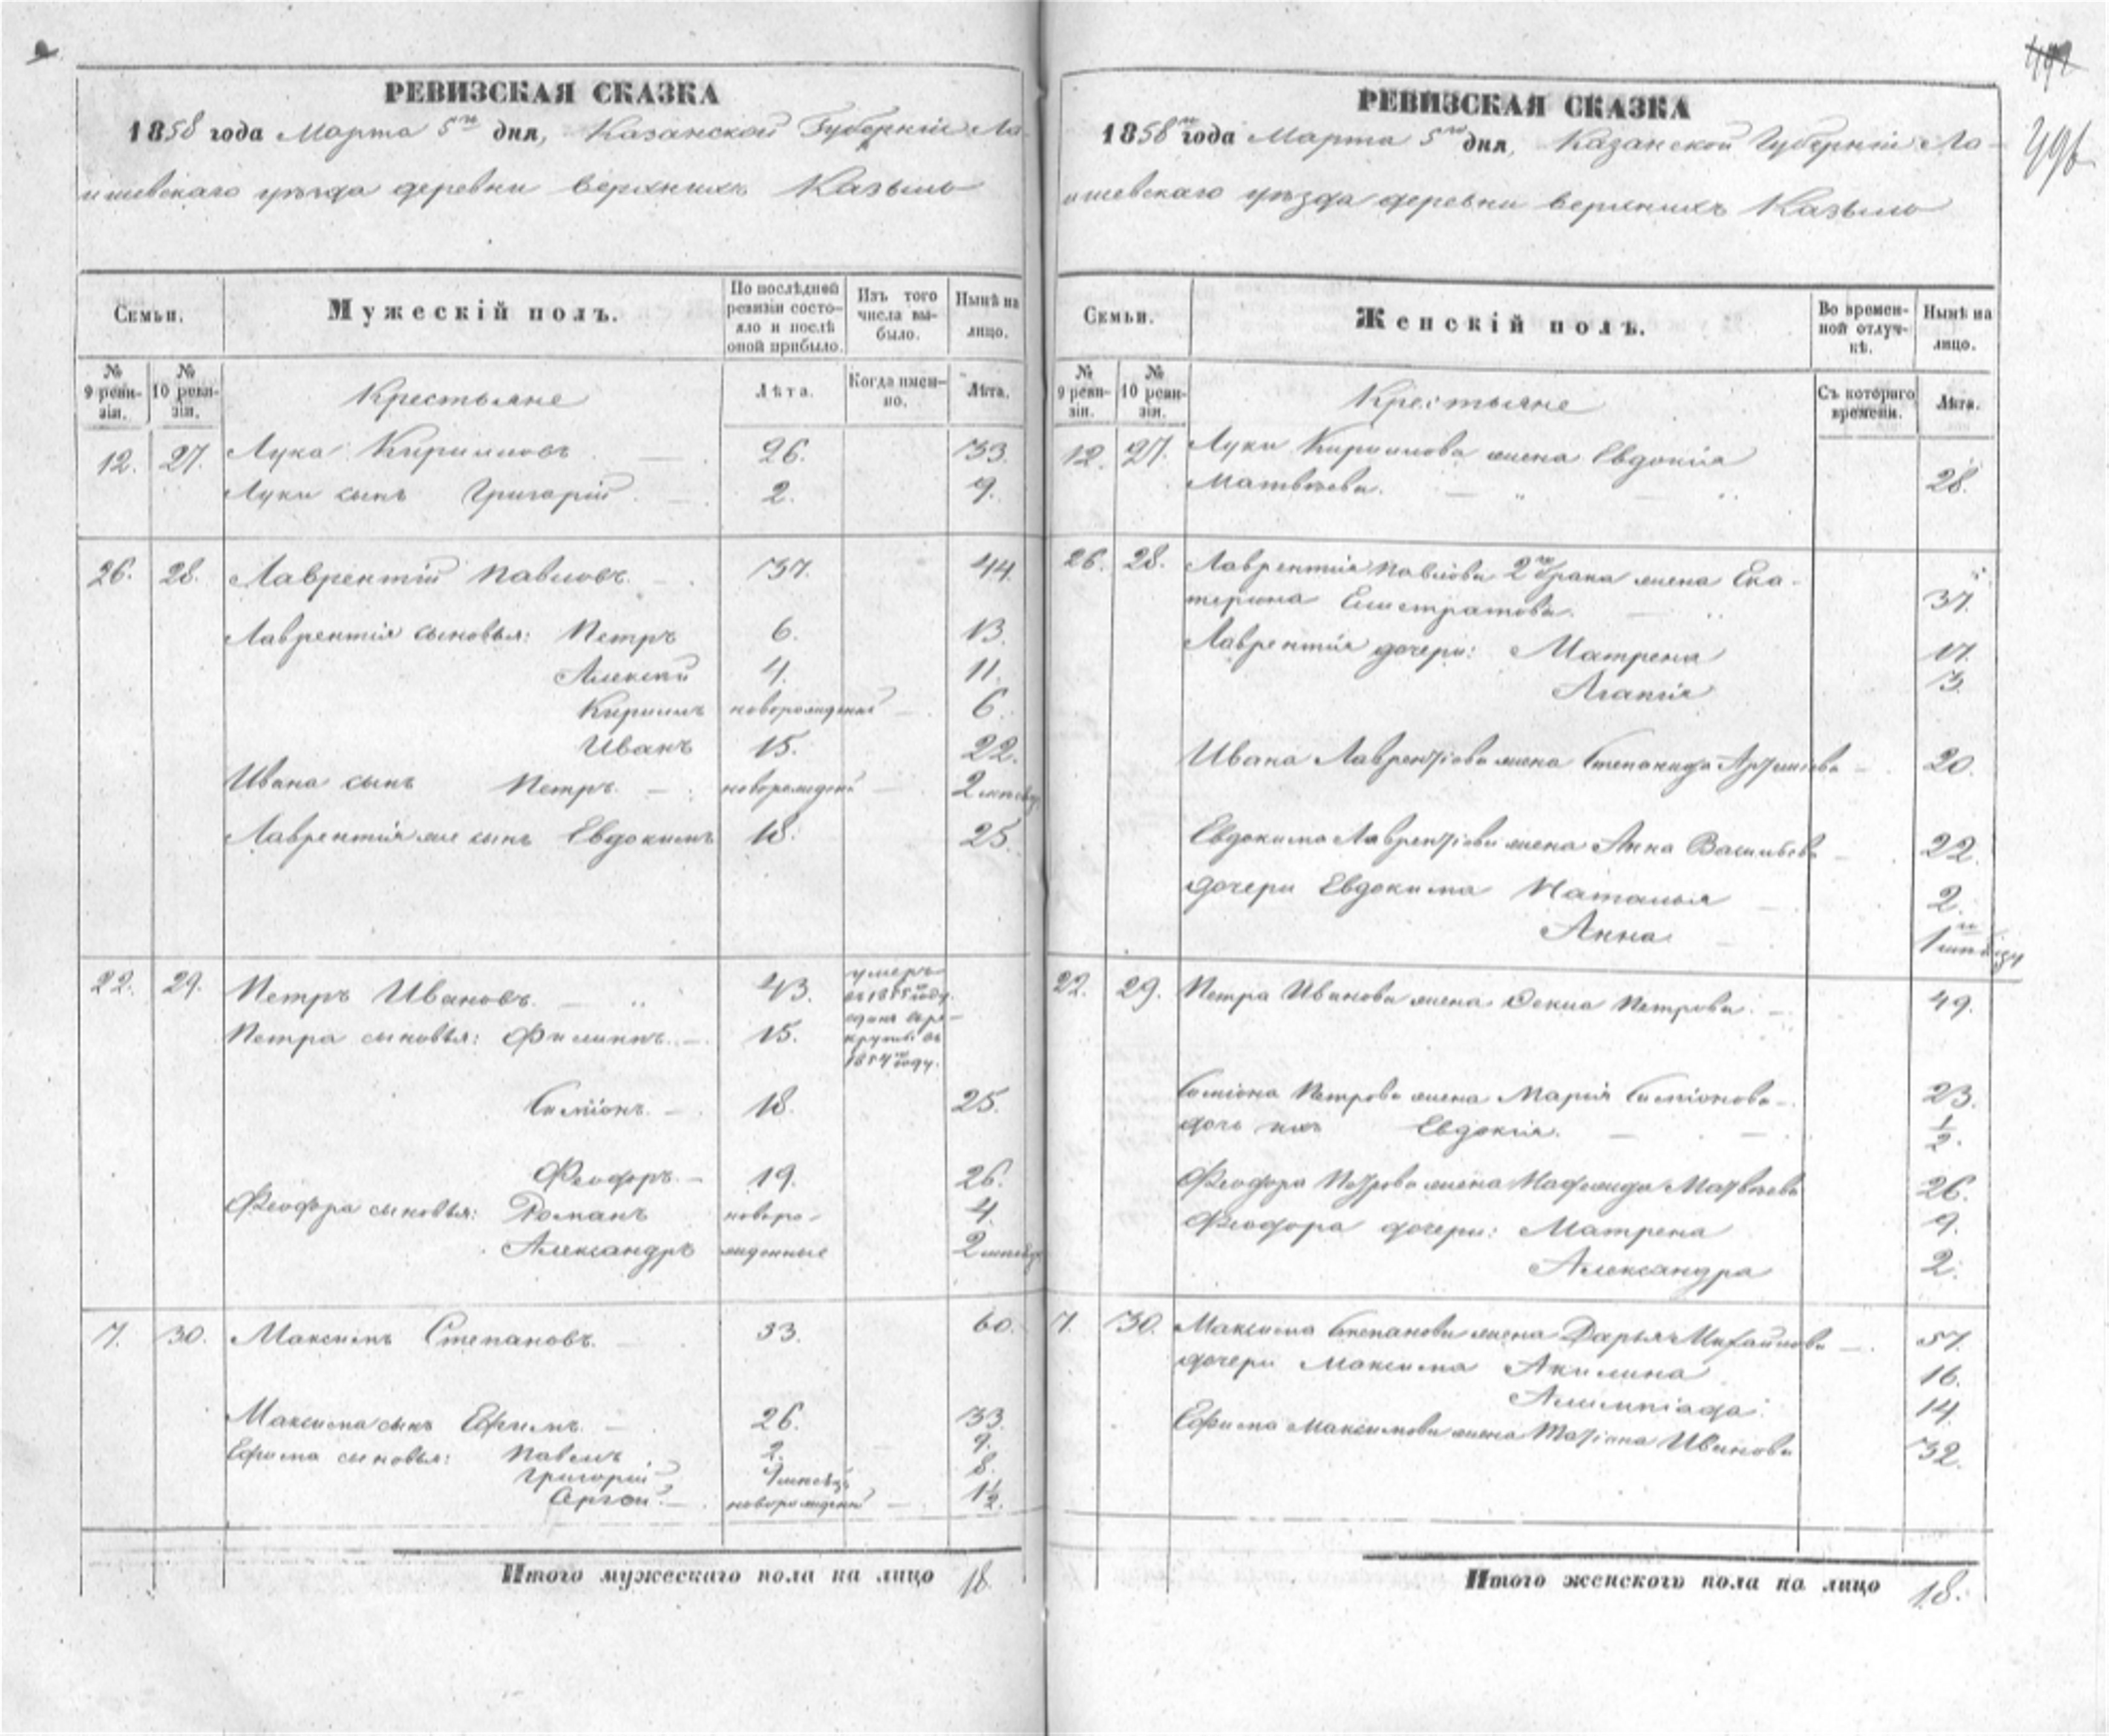 РЕВИЗСКАЯ СКАЗКА
1858 года Марта 5го дня, Казанской Губерніи Ла-
ишевскаго уѣзда деревни верхнихъ Казыль
Семьи.
Мужескій полъ.
По послѣдней ревизіи состояло и послѣ оной прибыло.
Изъ того числа выбыло.
Нынѣ на лицо.
№ 9 ревизіи.
№ 10 ревизіи.
Крестьяне
Лѣта.
Когда именно.
Лѣта.
12. 27. Лука Кирилловъ 26. 33.
Луки сынъ Григорій 2. 9.
26. 28. Лаврентій Павловъ 37. 44.
Лаврентія сыновья: Петръ 6. 13.
Алексѣй 4. 11.
Кириллъ новорожденный 6.
Иванъ 15. 22.
Ивана сынъ Петръ новорожденн 2 мѣсяц
Лаврентія же сынъ Евдокимъ 18. 25.
22. 29. Петръ Ивановъ 43. умеръ въ 1855 году.
Петра сыновья: Филиппъ 15. въ 1854 году.
Симіонъ 18. 25.
Феодоръ 19. 26.
Феодора сыновья: Романъ новоро- 4.
Александръ жденные 2 мѣсяц
7. 30. Максимъ Степановъ 53. 60.
Максима сынъ Ефимъ 26. 33.
Ефима сыновья: Павелъ 2. 9.
Григорій 8.
новорожденный 1½.
Итого мужескаго пола на лицо 18
496
РЕВИЗСКАЯ СКАЗКА
1858го года Марта 5го дня, Казанской Губерніи Ла-
ишевскаго уѣзда деревни верхнихъ Казыль
Семьи.
Женскій полъ.
Во временной отлучкѣ.
Нынѣ на лицо.
№ 9 ревизіи.
№ 10 ревизіи.
Крестьяне
Съ котораго времени.
Лѣта.
12. 27. Луки Кириллова жена Евдокія
Матвѣева. 28.
26. 28. Лаврентія Павлова 2го брака жена Ека-
терина Елистратова. 37.
Лаврентія дочери: Матрена 17.
Агапія 3.
Ивана Лаврентіова жена Степанида 20.
Евдокима Лаврентіова жена Анна Васильева 22.
дочери Евдокима Наталья 2.
Анна 1 мѣсяцу
22. 29. Петра Иванова жена Фекла Петрова 49.
Симіона Петрова жена Марія Симіонова 23.
дочь ихъ Евдокія. ½.
Феодора Петрова жена Надежда Матвѣева 26.
Феодора дочери: Матрена 9.
Александра 2.
7. 30. Максима Степанова жена Дарья Михайлова 57.
дочери Максима Акилина 16.
Алимпіада 14.
Ефима Максимова жена Татіана Иванова 32.
Итого женскаго пола на лицо 18.